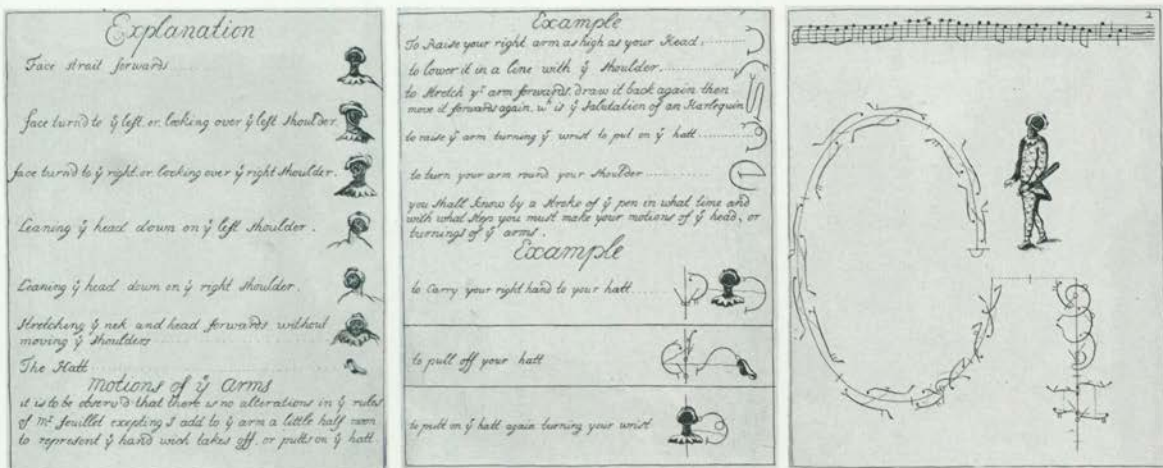 Explanation
Face strait forwards
face turn'd to ÿ left. or. looking over ÿ left shoulder.
face turn'd to ÿ right. or. looking over ÿ right shoulder.
Leaning ÿ head down on ÿ left shoulder.
Leaning ÿ head down on ÿ right shoulder.
Stretching ÿ nek and head forwards without
moving ÿ shoulders
The Hatt
Motions of ÿ Arms
it is to be observ'd that there is no alterations in ÿ rules
of Mr. feuillet exepting I add to ÿ arm a little half moon
to represent ÿ hand wich takes off, or putts on ÿ hatt.
Example
To Raise your right arm as high as your Head.
to lower it in a line with ÿ shoulder.
to Stretch yr. arm forwards, draw it back again then
move it forwards again. wh. is ÿ Salutation of an Harlequin
to raise ÿ arm turning ÿ wrist to put on ÿ hatt
to turn your arm round your shoulder
you shall know by a stroke of ÿ pen in what time and
with what step you must make your motions of ÿ head, or
turnings of ÿ arms.
Example
to Carry your right hand to your hatt
to pull off your hatt
to putt on ÿ hatt again turning your wrist
2